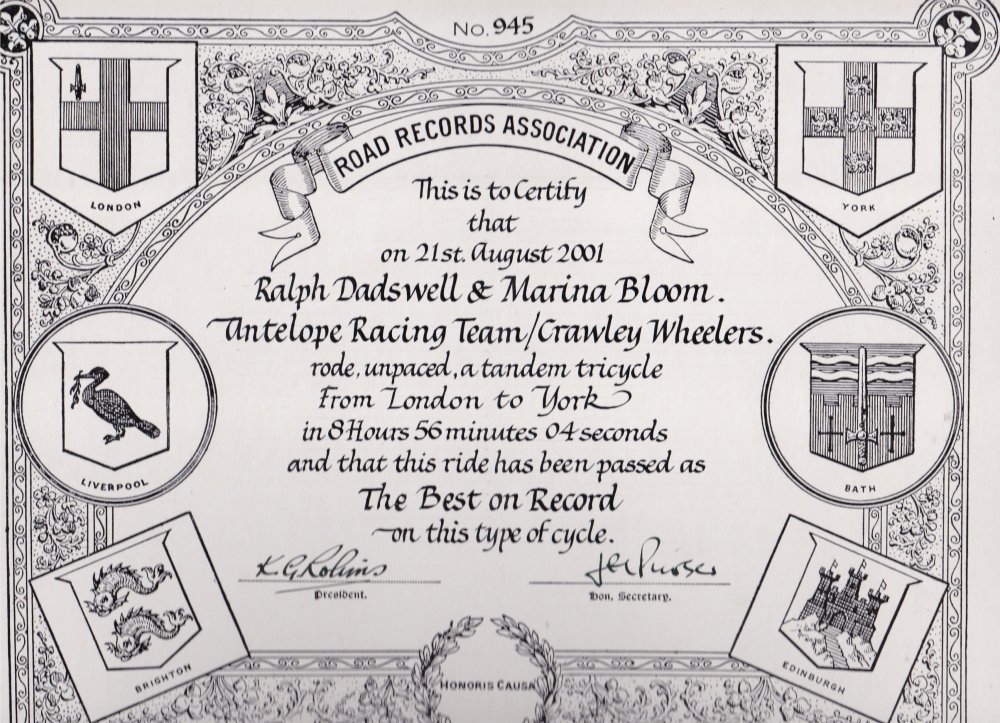 No. 945
ROAD RECORDS ASSOCIATION
LONDON
YORK
This is to Certify
that
on 21st. August 2001
Ralph Dadswell & Marina Bloom.
Antelope Racing Team/Crawley Wheelers.
rode, unpaced, a tandem tricycle
From London to York
in 8 Hours 56 minutes 04 seconds
and that this ride has been passed as
The Best on Record
on this type of cycle.
LIVERPOOL
BATH
President.
Hon. Secretary.
BRIGHTON
EDINBURGH
HONORIS CAUSA